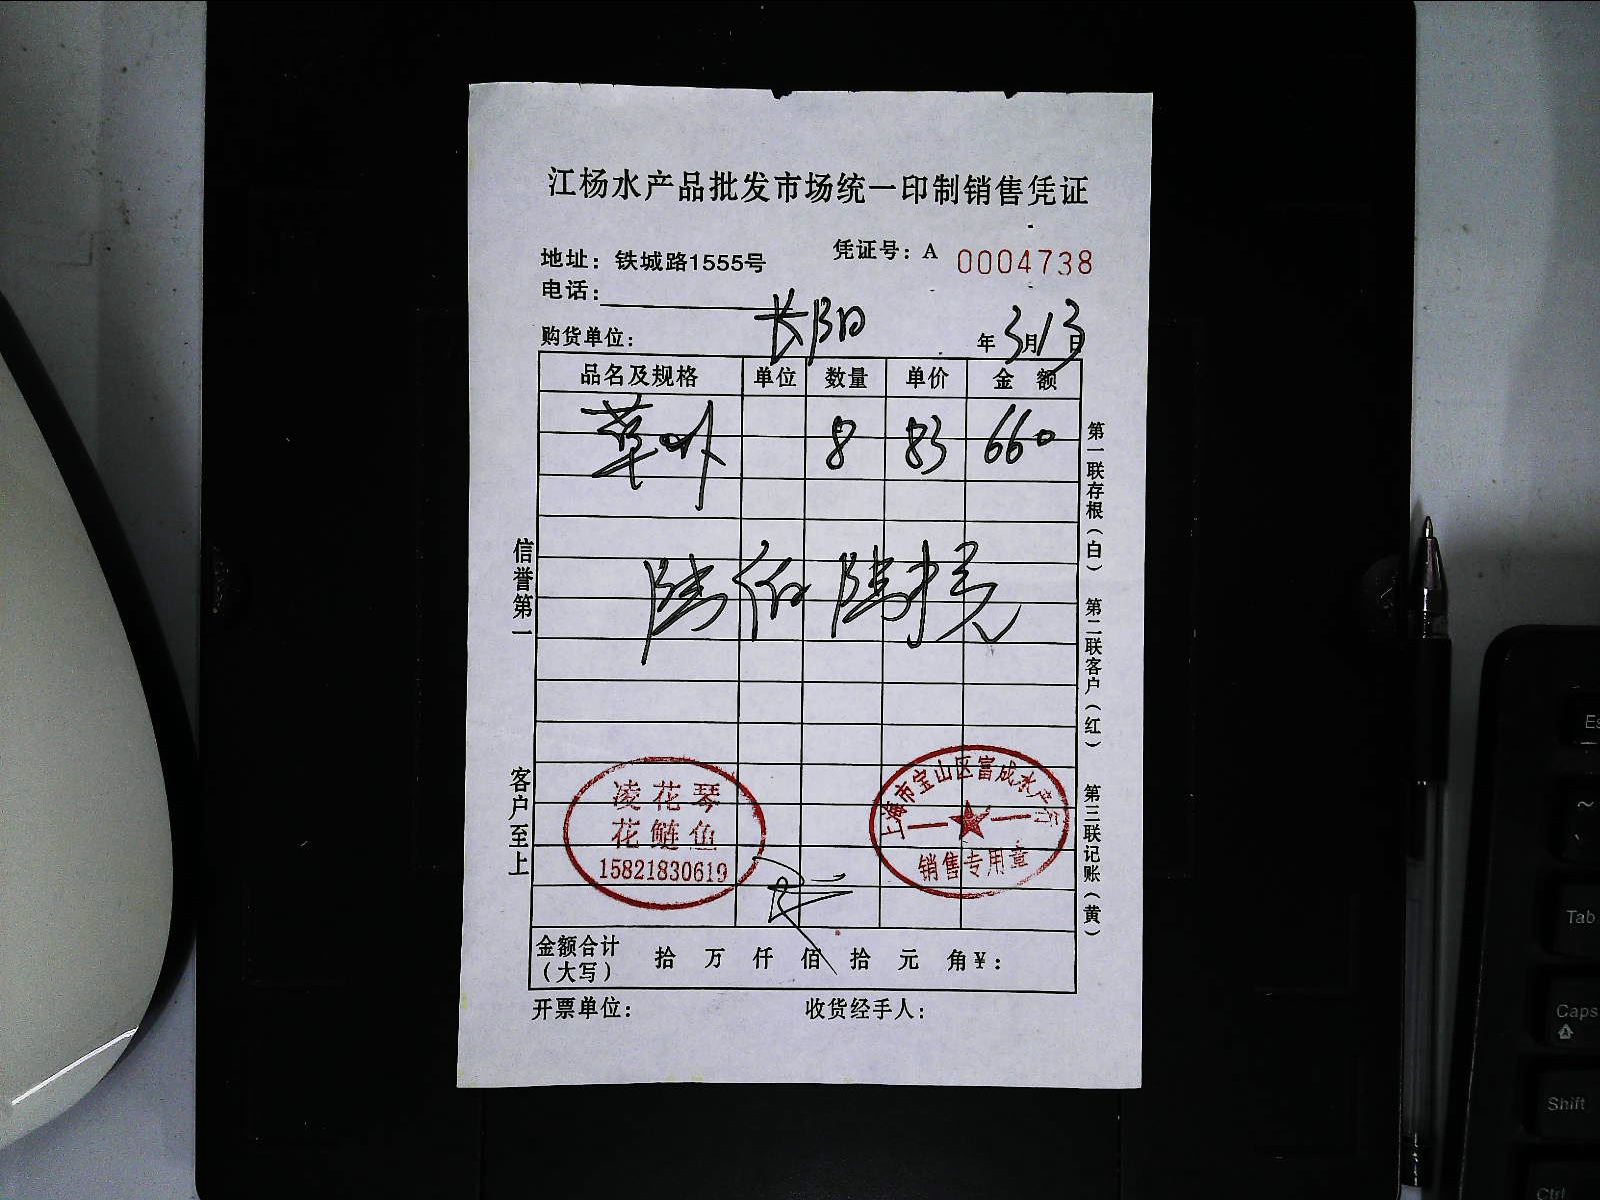 江杨水产品批发市场统一印制销售凭证
地址：铁城路1555号
凭证号：A 0004738
电话：
购货单位： 长阳
年3月13日
品名及规格 单位 数量 单价 金额
8 83 660
陆佰陆拾元
信誉第一
客户至上
第一联存根（白） 第二联客户（红） 第三联记账（黄）
凌花琴
花鲢鱼
15821830619
上海市宝山区富成水产行
销售专用章
金额合计（大写） 拾 万 仟 佰 拾 元 角 ¥：
开票单位： 收货经手人：
Es
~
Tab
Caps
Shift
Ctrl